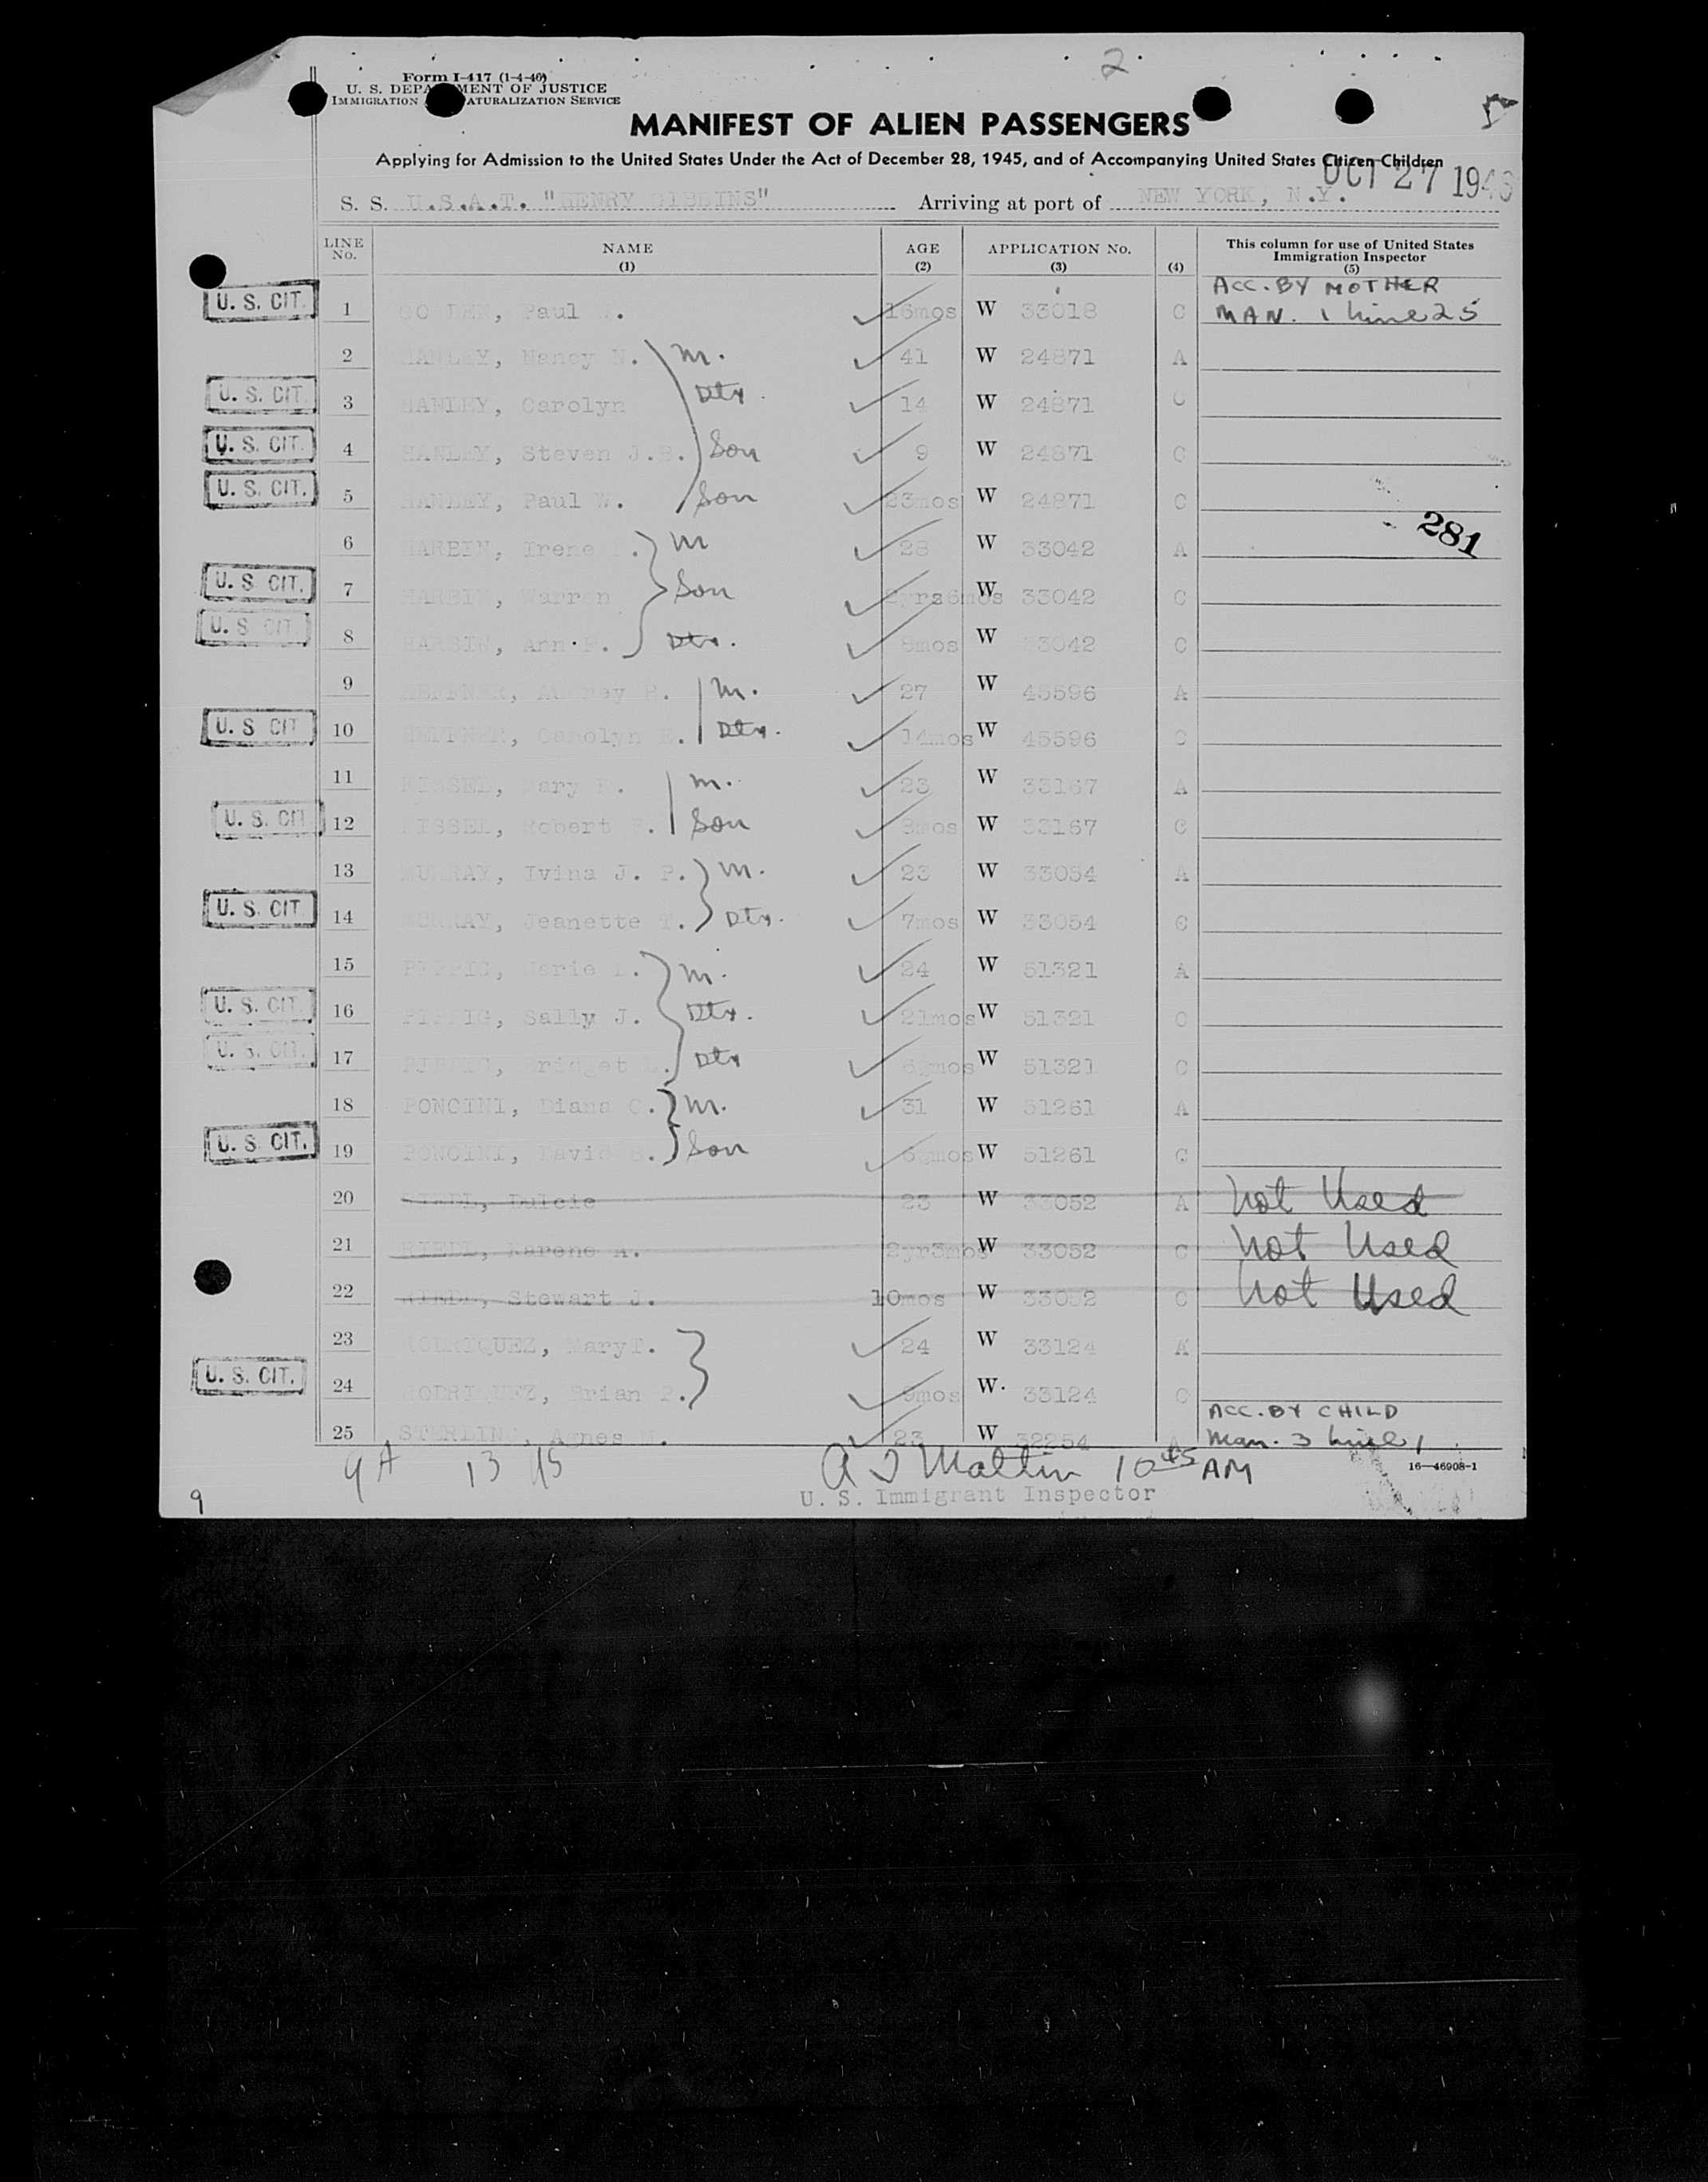 2
Form I-417 (1-4-46)
U. S. DEPA MENT OF JUSTICE
IMMIGRATION ATURALIZATION SERVICE
MANIFEST OF ALIEN PASSENGERS
Applying for Admission to the United States Under the Act of December 28, 1945, and of Accompanying United States Citizen Children
OCT 27 1946
S. S. U.S.A.T. "HENRY GIBBINS" Arriving at port of NEW YORK, N.Y.
LINE No. NAME (1) AGE (2) APPLICATION No. (3) (4) This column for use of United States Immigration Inspector (5)
U. S. CIT. 1 Paul 16mos W 33018 C ACC. BY MOTHER
MAN. 1 line 25
2 HANLEY, Nancy N. m. 41 W 24871 A
U. S. CIT. 3 HANLEY, Carolyn Dtr. 14 W 24871 C
U. S. CIT. 4 HANLEY, Steven J.B. Son 9 W 24871 C
U. S. CIT. 5 HANLEY, Paul W. Son 23mos W 24871 C
281
6 HARBIN, Irene m 28 W 33042 A
U. S. CIT. 7 HARBIN, Warren Son yrs6mos W 33042 C
U. S. CIT. 8 HARBIN, Ann Dtr. mos W 33042 C
9 HEFFNER, m. 27 W 45596 A
U. S. CIT 10 HEFFNER, Carolyn Dtr. 14mos W 45596 C
11 KISSEL, Mary m. 23 W 33167 A
U. S. CIT 12 KISSEL, Robert Son mos W 33167 C
13 MURRAY, Ivina J. P. m. 23 W 33054 A
U. S. CIT 14 MURRAY, Jeanette T. Dtr. 7mos W 33054 C
15 PIPPIG, Marie m. 24 W 51321 A
U. S. CIT. 16 PIPPIG, Sally J. Dtr. 21mos W 51321 C
U. S. CIT. 17 PIPPIG, Bridget Dtr mos W 51321 C
18 PONCINI, Diana C. m. 31 W 51261 A
U. S. CIT. 19 PONCINI, David Son mos W 51261 C
20 RIEDL, Dulcie 23 W 33052 A Not Used
21 RIEDL, Karene A. 2yr3mos W 33052 C Not Used
22 RIEDL, Stewart J. 10mos W 33052 C Not Used
23 RODRIQUEZ, MaryT. 24 W 33124 A
U. S. CIT. 24 RODRIQUEZ, Brian P. 9mos W. 33124 C
25 STERLING, Agnes M. 23 W 32254 A ACC. BY CHILD
Man. 3 line 1
9A 13 10 45 AM
16—46908-1
U. S. Immigrant Inspector
9